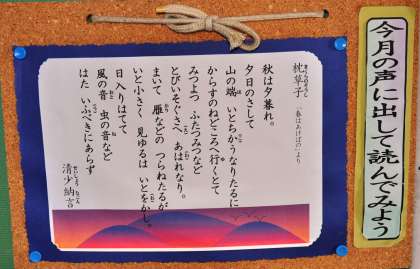 今月の声に出して読んでみよう
枕草子「春はあけぼの」より
秋は夕暮れ。
夕日のさして
山の端 いとちかう なりたるに
からすのねどころへ行くとて
みつよつ ふたつみつなど
とびいそぐさへ あはれなり。
まいて 雁などの つらねたるが
いと小さく 見ゆるは いとをかし。
日入りはてて
風の音 虫の音など
はた いふべきにあらず
清少納言